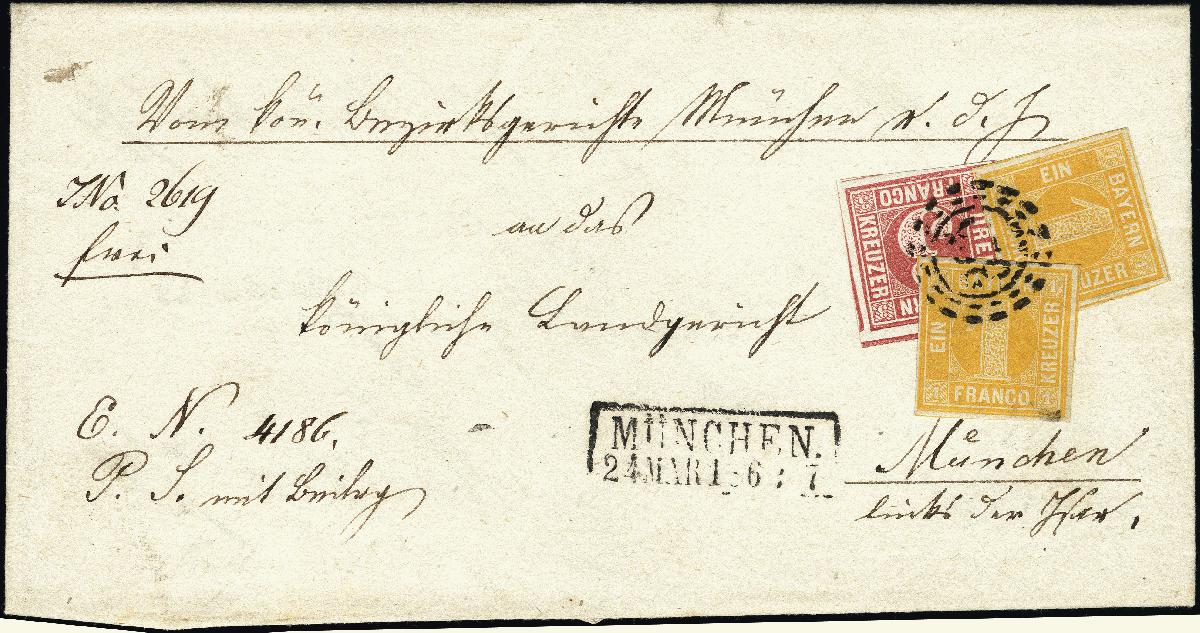 Vom kön. Bezirksgerichte München r. d. I
No. 2619
frei
an das
königliche Landgericht
E. N. 4186.
P. S. mit Beilag
München
links der Isar.
MÜNCHEN.
24 MAR 1 6 : 7
FRANCO
KREUZER
EIN
BAYERN
UZER
EIN
KREUZER
FRANCO
1 1